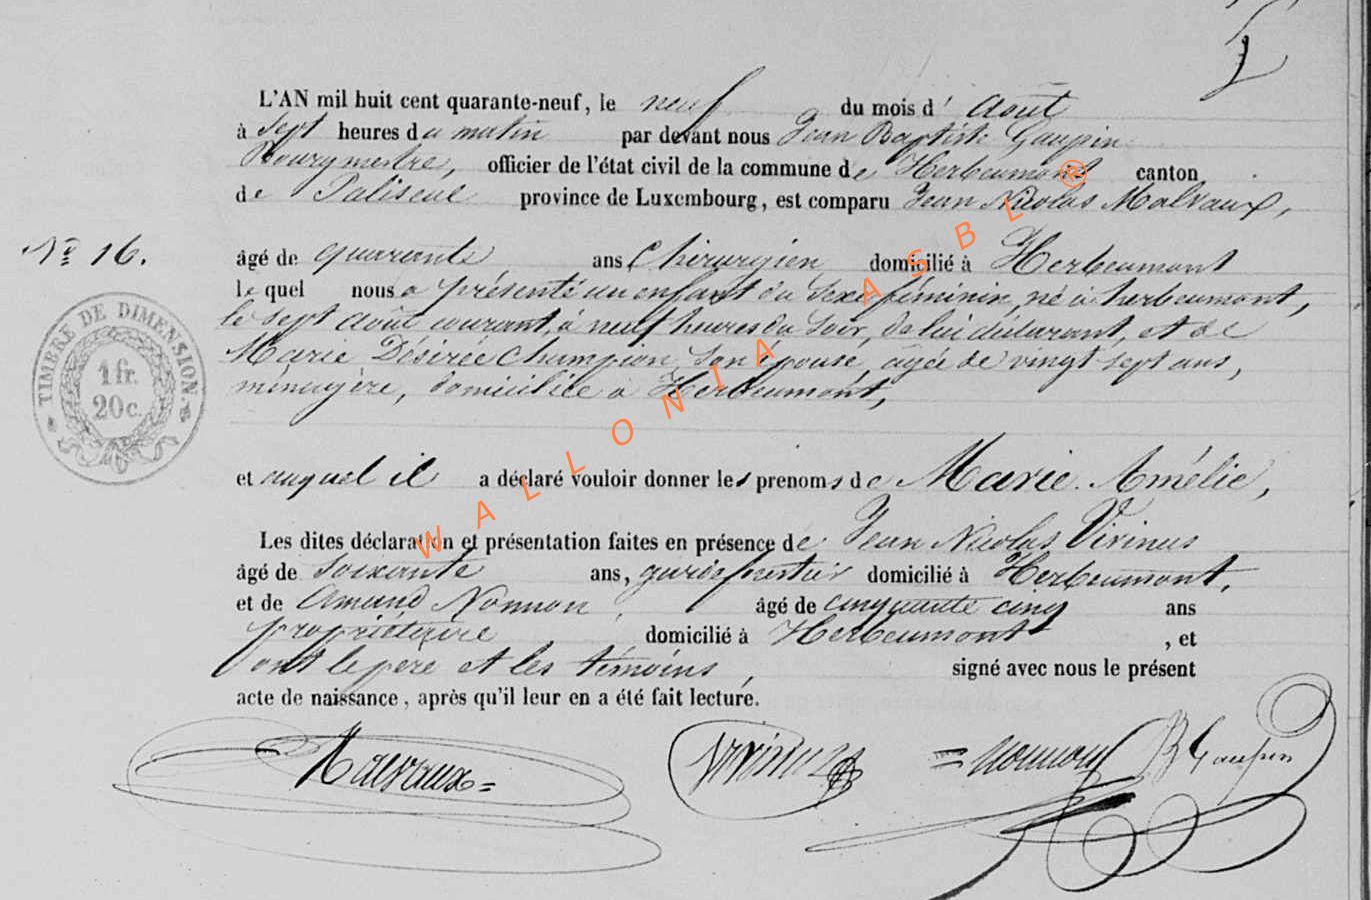 L'AN mil huit cent quarante-neuf, le neuf du mois d' Août
à Sept heures du matin par devant nous Jean Baptiste Gaupin
Bourgmestre, officier de l'état civil de la commune de Herbeumont canton
de Paliseul province de Luxembourg, est comparu Jean Nicolas Malvaux,
N° 16.
âgé de quarante ans, Chirurgien domicilié à Herbeumont
lequel nous a présenté un enfant du Sexe féminin, né à herbeumont,
le Sept Août courant, à neuf heures du Soir, de lui déclarant, et de
Marie Désirée Champion Son épouse, agée de vingt sept ans,
ménagère, domiciliée à Herbeumont,
TIMBRE DE DIMENSION.
1 fr.
20 c.
et auquel il a déclaré vouloir donner les prenoms de Marie Amélie,
Les dites déclaration et présentation faites en présence de Jean Nicolas Virinus
âgé de soixante ans, garde forestier domicilié à Herbeumont,
et de Amand Nonnon âgé de cinquante cinq ans
propriétaire domicilié à Herbeumont, et
ont le père et les témoins, signé avec nous le présent
acte de naissance, après qu'il leur en a été fait lecture.
Malvaux Virinus Nonnon JB Gaupin
WALLONIA ASBL ®